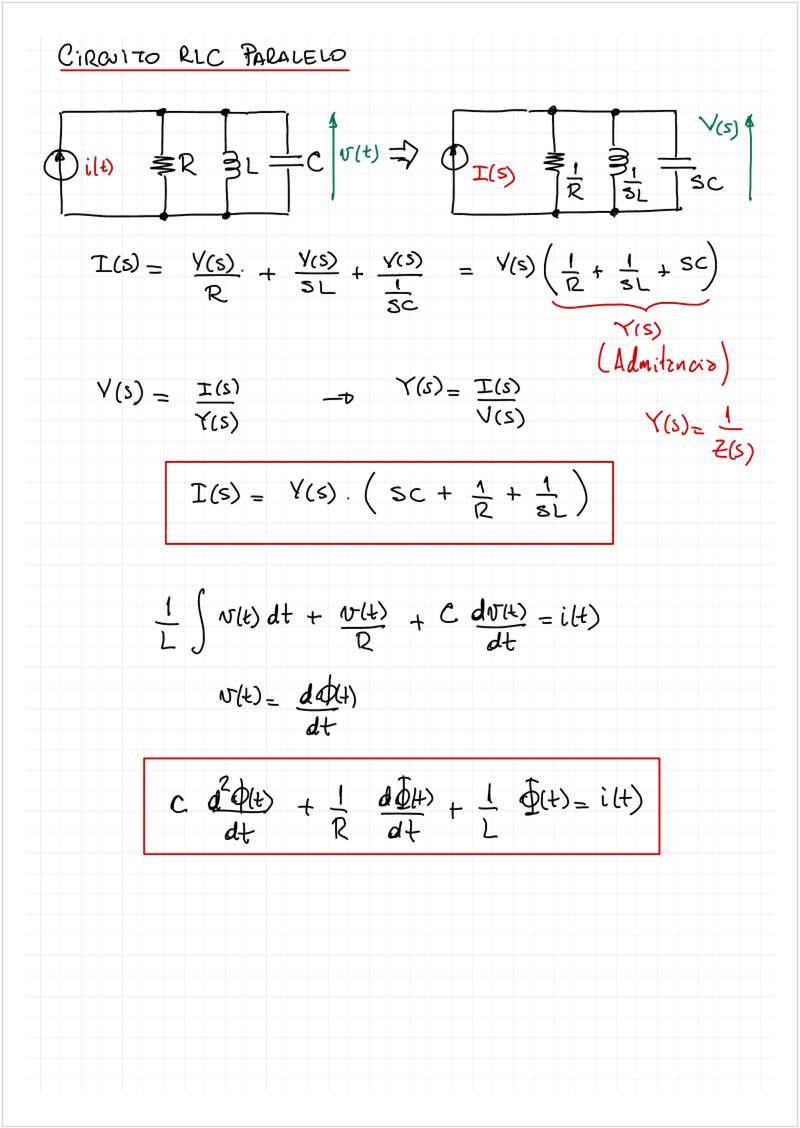 CIRCUITO RLC PARALELO
i(t) R L C v(t) ⇒ I(s) 1/R 1/sL sC V(s)
I(s) = V(s)/R + V(s)/sL + V(s)/(1/sC) = V(s) (1/R + 1/sL + sC)
Y(s)
(Admitancia)
V(s) = I(s)/Y(s) → Y(s) = I(s)/V(s)
Y(s) = 1/Z(s)
I(s) = V(s) · (sC + 1/R + 1/sL)
1/L ∫ v(t) dt + v(t)/R + C dv(t)/dt = i(t)
v(t) = dΦ(t)/dt
C d²Φ(t)/dt + 1/R dΦ(t)/dt + 1/L Φ(t) = i(t)